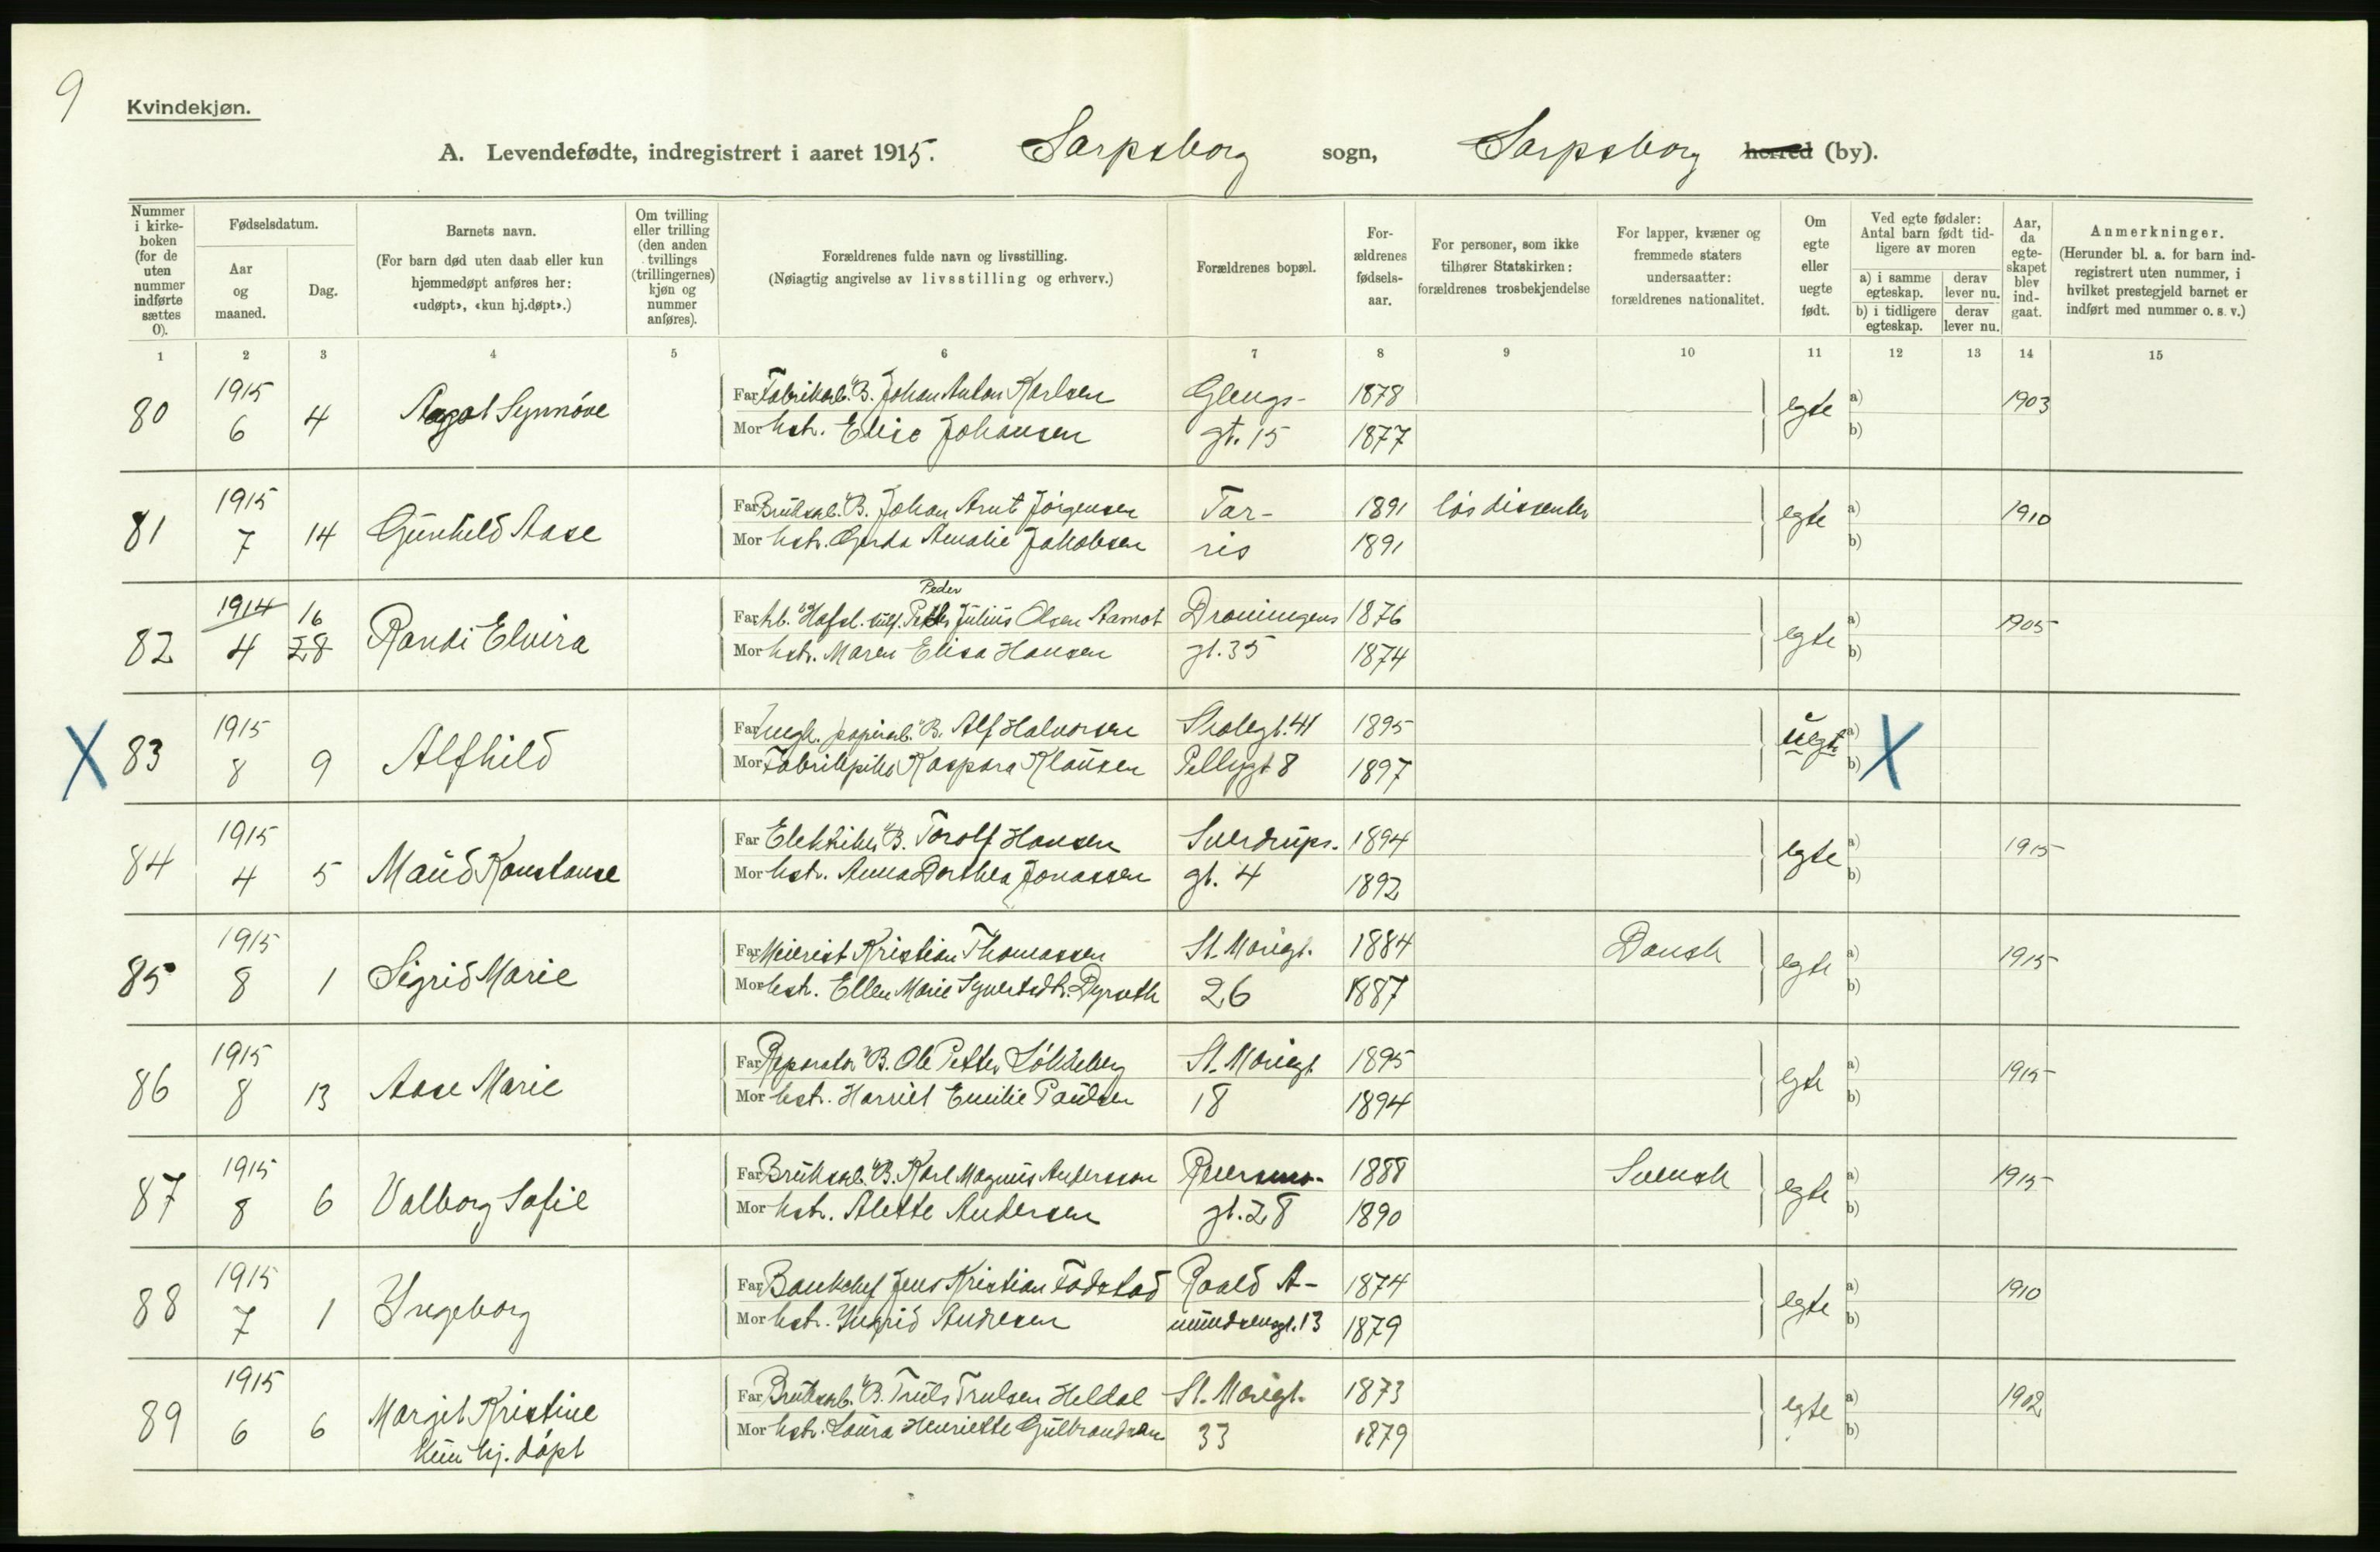 9
Kvindekjøn.
A. Levendefødte, indregistrert i aaret 1915. Sarpsborg sogn, Sarpsborg herred (by).
Nummer i kirke-boken (for de uten nummer indførte sættes 0).
Fødselsdatum.
Aar og maaned.
Dag.
Barnets navn.
(For barn død uten daab eller kun hjemmedøpt anføres her: «udøpt», «kun hj.døpt».)
Om tvilling eller trilling (den anden tvillings (trillingernes) kjøn og nummer anføres).
Forældrenes fulde navn og livsstilling.
(Nøiagtig angivelse av livsstilling og erhverv.)
Forældrenes bopæl.
For-ældrenes fødsels-aar.
For personer, som ikke tilhører Statskirken: forældrenes trosbekjendelse
For lapper, kvæner og fremmede staters undersaatter: forældrenes nationalitet.
Om egte eller uegte født.
Ved egte fødsler: Antal barn født tid-ligere av moren
a) i samme egteskap.
derav lever nu.
b) i tidligere egteskap.
derav lever nu.
Aar, da egte-skapet blev ind-gaat.
Anmerkninger.
(Herunder bl. a. for barn ind-registrert uten nummer, i hvilket prestegjeld barnet er indført med nummer o. s. v.)
1 2 3 4 5 6 7 8 9 10 11 12 13 14 15
80 1915 6 4 Aagot Synnöve
Far Fabrikarb. "B. Johan Anton Karlsen Glengs- 1878 egte a) 1903
Mor hstr. Elise Johansen gt. 15 1877 b)
81 1915 7 14 Gunhild Aase
Far Bruksarb. "B. Johan Arnt Jörgensen Tar- 1891 lös dissenter egte a) 1910
Mor hstr. Gerda Amalie Jakobsen ris 1891 b)
82 1914 4 16 28 Randi Elvira
Peder
Far Arb. "Hafsl. sulf. Petter Julius Olsen Aamot Droningens 1876 egte a) 1905
Mor hstr. Maren Elisa Hansen gt. 35 1874 b)
X 83 1915 8 9 Alfhild
Far Ungk. papirarb. "B. Alf Halvorsen Skolegt. 41 1895 uegte a) X
Mor Fabrikpike Kaspara Klausen Pellygt 8 1897 b)
84 1915 4 5 Maud Konstanse
Far Elektriker "B. Torolf Hansen Sverdrups- 1894 egte a) 1915
Mor hstr. Anna Dorthea Jonassen gt. 4 1892 b)
85 1915 8 1 Sigrid Marie
Far Meierist Kristian Thomassen St. Mariegt. 1884 Dansk egte a) 1915
Mor hstr. Ellen Marie Syvertsdtr. Dyrseth 26 1887 b)
86 1915 8 13 Aase Marie
Far Reparatör "B. Ole Petter Lökkeberg St. Mariegt 1895 egte a) 1915
Mor hstr. Harriet Emilie Paulsen 18 1894 b)
87 1915 8 6 Valborg Sofie
Far Bruksarb. "B. Karl Magnus Andersson 1888 Svensk egte a) 1915
Mor hstr. Alette Andersen gt. 28 1890 b)
88 1915 7 1 Ingeborg
Far Bankchef Jens Kristian Fodstad Roald A- 1874 egte a) 1910
Mor hstr. Ingrid Andresen mundsensgt. 13 1879 b)
89 1915 6 6 Margit Kristine
Far Bruksarb. "B. Truls Trulsen Heldal St. Mariegt. 1873 egte a) 1902
Mor hstr. Laura Henriette Gulbrandsen 33 1879 b)
kun hj. döpt